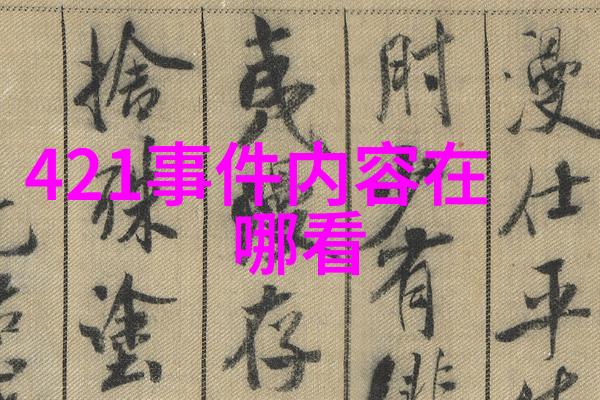 421事件内容在
哪看
漫仕平
时有
夷存
捨殊塗